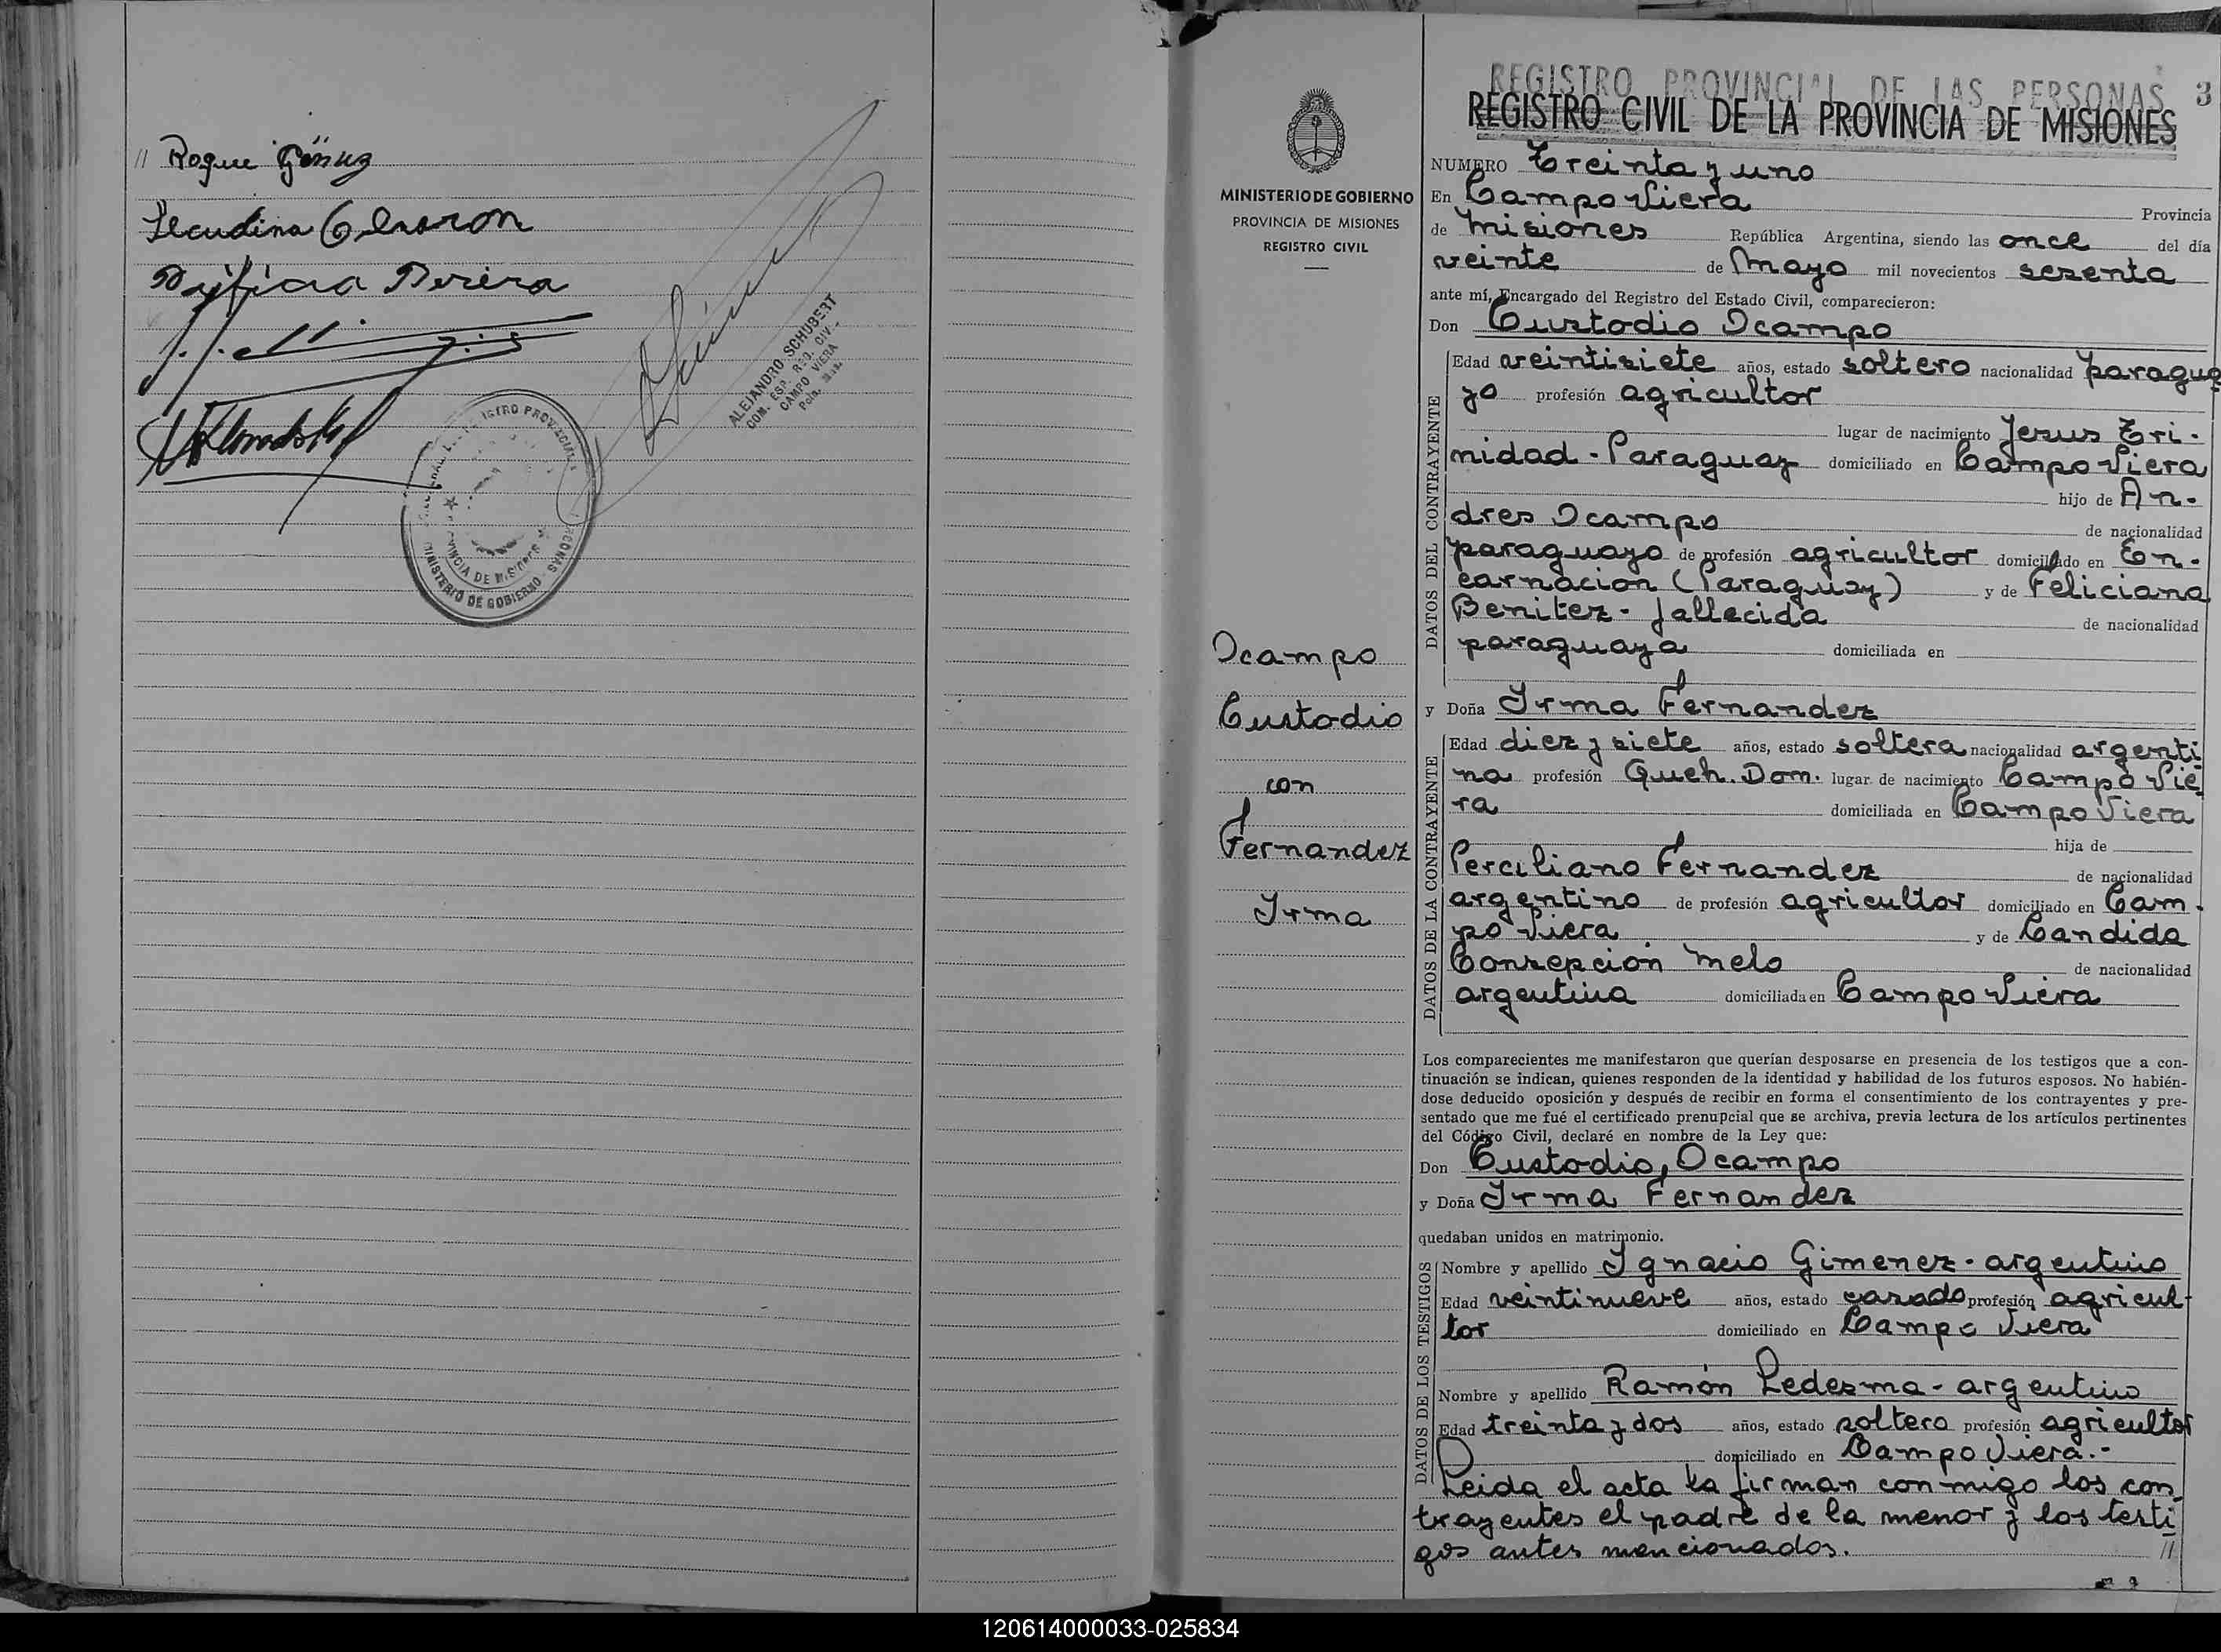 // Roque Gómez
Pereira
ALEJANDRO SCHUBERT
COM. ESP. REG. CIV.
CAMPO VIERA
MINISTERIO DE GOBIERNO
MINISTERIO DE GOBIERNO
PROVINCIA DE MISIONES
REGISTRO CIVIL
Ocampo
Custodio
con
Fernandez
Yrma
REGISTRO PROVINCIAL DE LAS PERSONAS 3
REGISTRO CIVIL DE LA PROVINCIA DE MISIONES
NUMERO Treinta y uno
En Campo Viera Provincia
de Misiones República Argentina, siendo las once del día
veinte de Mayo mil novecientos sesenta
ante mí, Encargado del Registro del Estado Civil, comparecieron:
Don Custodio Ocampo
DATOS DEL CONTRAYENTE
Edad veintisiete años, estado soltero nacionalidad paragua
yo profesión agricultor
lugar de nacimiento Jesus Tri-
nidad - Paraguay domiciliado en Campo Viera
hijo de An-
dres Ocampo de nacionalidad
paraguayo de profesión agricultor domiciliado en En-
carnacion (Paraguay) y de Feliciana
Benitez - fallecida de nacionalidad
paraguaya domiciliada en
y Doña Yrma Fernandez
DATOS DE LA CONTRAYENTE
Edad diez y siete años, estado soltera nacionalidad argenti
na profesión Queh. Dom. lugar de nacimiento Campo Vie
ra domiciliada en Campo Viera
hija de
Perciliano Fernandez de nacionalidad
argentino de profesión agricultor domiciliado en Cam-
po Viera y de Candida
Consepcion Melo de nacionalidad
argentina domiciliada en Campo Viera
Los comparecientes me manifestaron que querían desposarse en presencia de los testigos que a con-
tinuación se indican, quienes responden de la identidad y habilidad de los futuros esposos. No habién-
dose deducido oposición y después de recibir en forma el consentimiento de los contrayentes y pre-
sentado que me fué el certificado prenupcial que se archiva, previa lectura de los artículos pertinentes
del Código Civil, declaré en nombre de la Ley que:
Don Custodio, Ocampo
y Doña Yrma Fernandez
quedaban unidos en matrimonio.
DATOS DE LOS TESTIGOS
Nombre y apellido Ygnacio Gimenez - argentino
Edad veintinueve años, estado casado profesión agricul-
tor domiciliado en Campo Viera
Nombre y apellido Ramón Ledesma - argentino
Edad treinta y dos años, estado soltero profesión agricultor
domiciliado en Campo Viera.-
Leida el acta la firman conmigo los con
trayentes el padre de la menor y los testi
gos antes mencionados. //
120614000033-025834